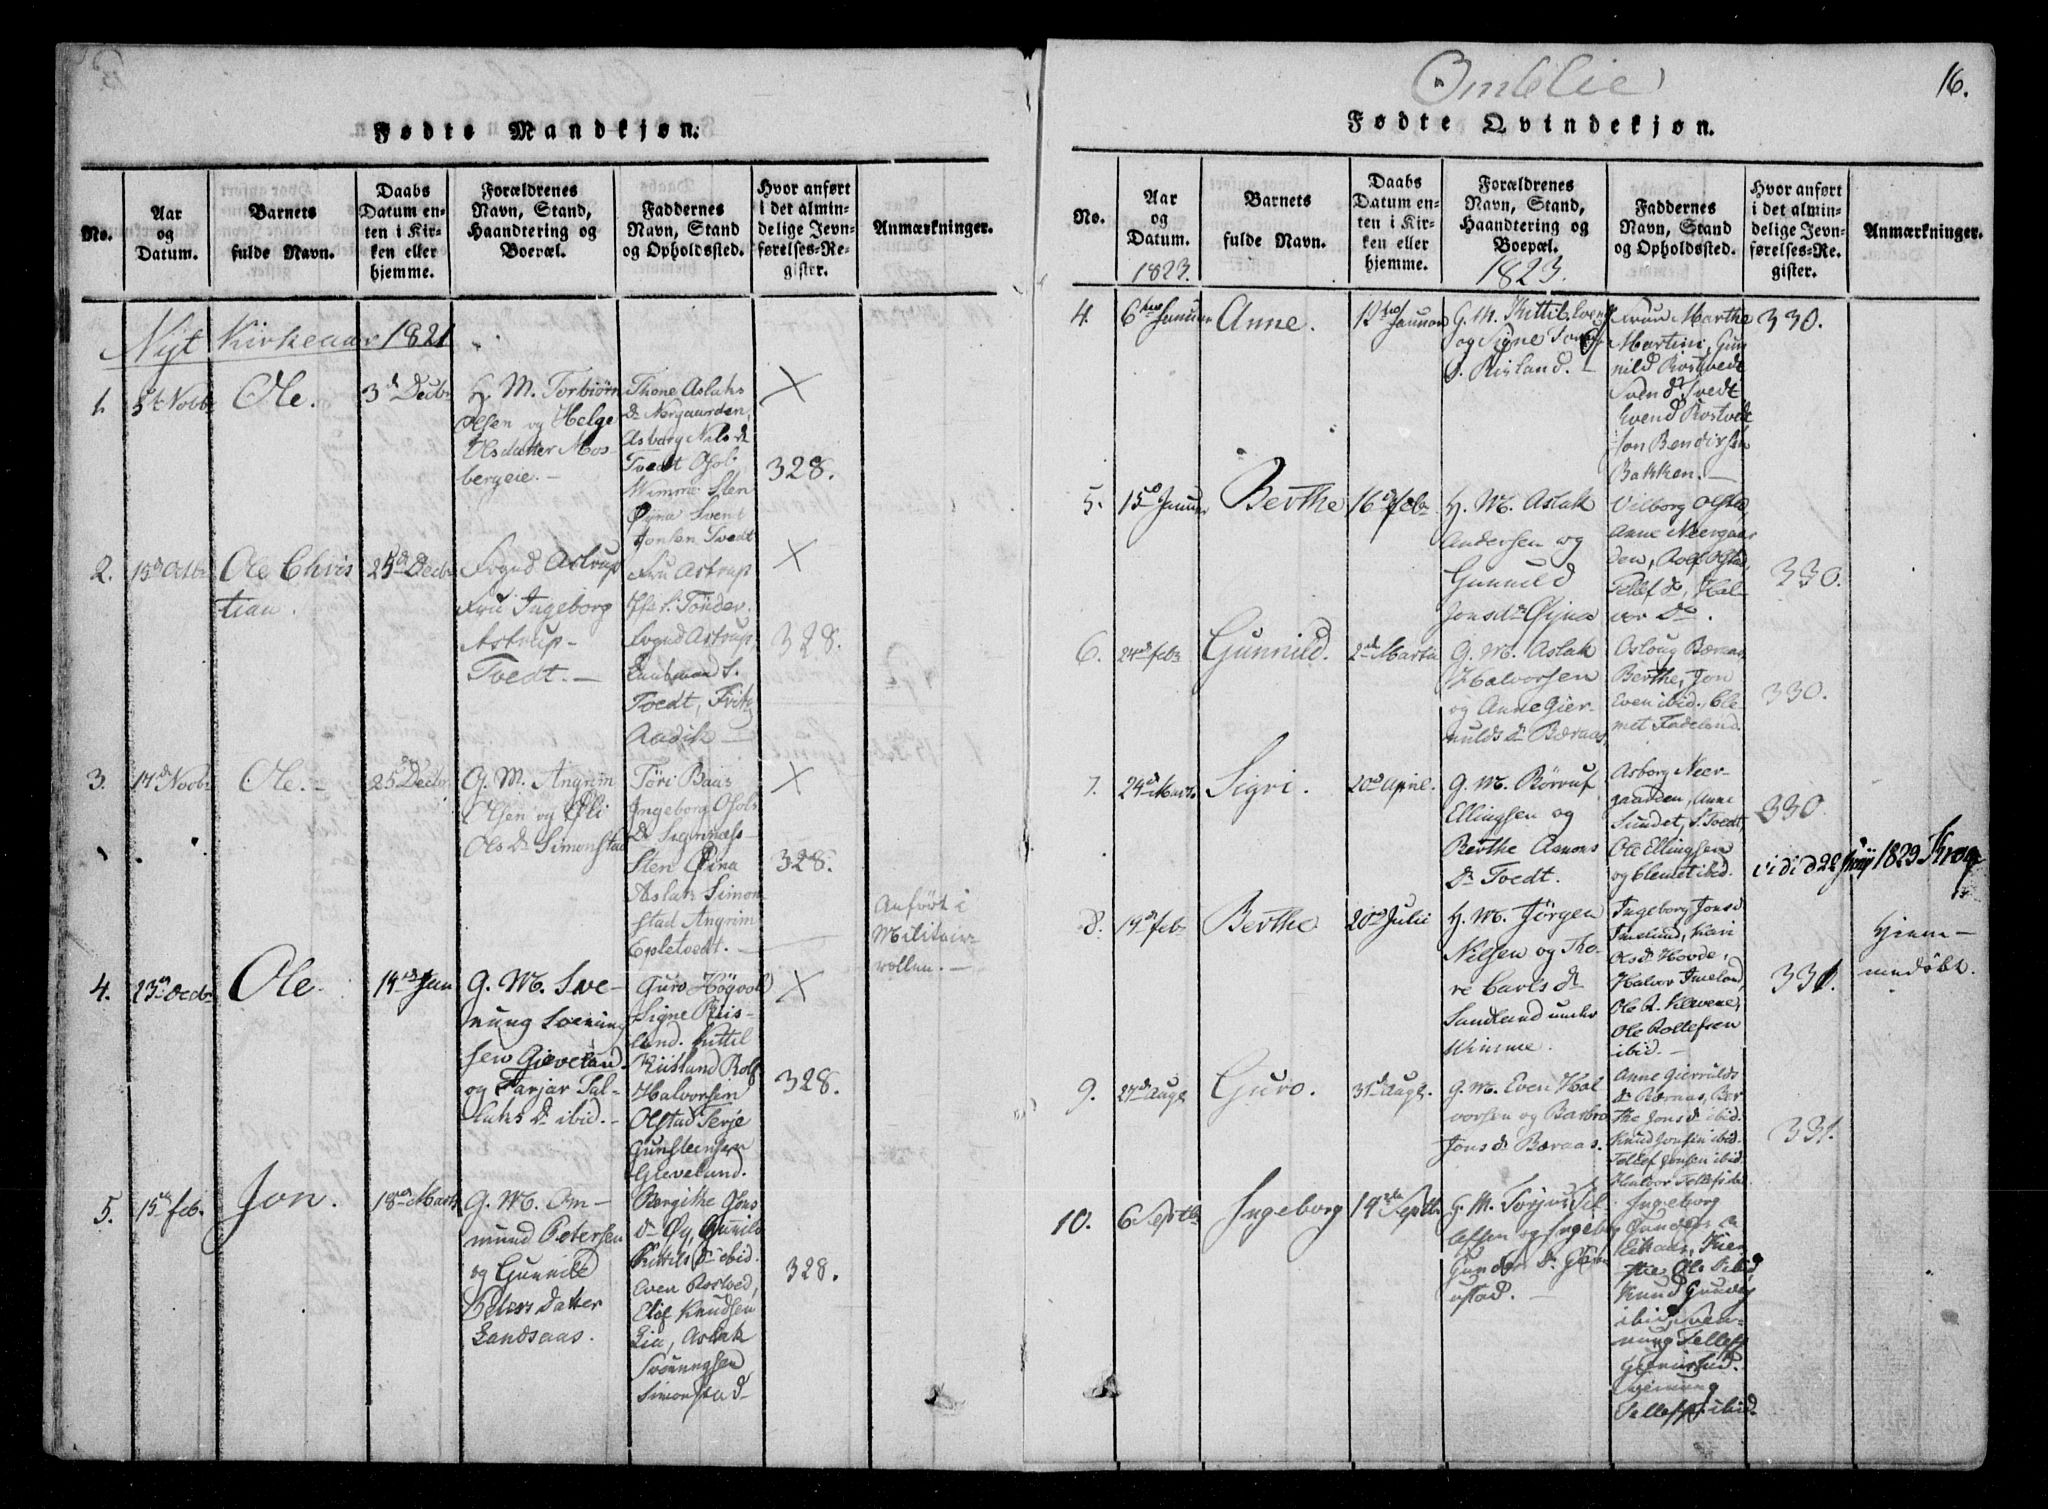 Fødte Mandkjøn.
No.
Aar
og
Datum.
Barnets
fulde Navn.
Daabs
Datum en-
ten i Kir-
ken eller
hjemme.
Forældrenes
Navn, Stand,
Haandtering og
Boepæl.
Faddernes
Navn, Stand
og Opholdssted.
Hvor anført
i det almin-
delige Jevn-
førelses-Re-
gister.
Anmærkninger.
Nyt Kirkeaar 1821
1.
Novbr
Ole.
3d Decbr
H. M. Torbiørn
Olsen og Helge
Olsdatter Mos
bergeie. -
Thone Aslaks
Dr Nergaarden,
Asborg Nils dr
Tvedt Osol.
Wimme Sten
Øyna Svend
Jonsen Tvedt
×
328.
2.
Ole Chris
tian.
25d Decbr
Fogud Astrup
Fru Ingeborg
Astrup-
Tvedt. -
Fru Astrup
Tönder.
Fogud Astrup,
S.
Tvedt, Fritz
Aadik -
×
328.
3.
14d Novbr
Ole. -
25d Decbr
G. M. Angrim
Olsen og Øli
Ols Dr Simonstad
Töri Baas
Ingeborg Osols
Dr Sigernæss-
Sten Øina
Aslak Simon
stad Angrim
Epletvedt. -
×
328.
Anført i
Militair-
rollen. -
4.
23de Decbr
Ole.
14de Jan
G. M. Sve-
nung Svenung
sen Gjeveland
og Tarjær Tal-
laks Dr ibid. -
Guro Högvold
Signe Riis-
land. Kittil
Riisland Rolf
Halvorsen
Olstad Terje
Gunsteinsen
Gievelund.
×
328.
5.
15de feb.
Jon.
18de Marts
G. M. Om-
mund Petersen
og Gunnild
Peters datter
Landsaas.
Bergithe Jons
dr Øy, Gunild
Kittils dr ibid.
Even Rostved,
Elof Knudsen
Lia, Aslak
Svenungsen
Simonstad-
328.
Omblie
16.
Fødte Qvindekjøn.
No.
Aar
og
Datum.
1823.
Barnets
fulde Navn.
Daabs
Datum en-
ten i Kir-
ken eller
hjemme.
Forældrenes
Navn, Stand,
Haandtering og
Boepæl.
1823.
Faddernes
Navn, Stand
og Opholdssted.
Hvor anført
i det almin-
delige Jevn-
førelses-Re-
gister.
Anmærkninger.
4.
6te Januar
Anne.
12te Januar
G. M. Kittil
og Signe
Risland. -
Marthe
Martini, Gun
nild Rostvedt
Svend Tvedt
Evend Rostvedt
Jon Bendixsen
Bakken. -
330.
5.
15d Januar
Berthe
16d febr
H. M. Aslak
Andersen og
Gunnild
Jonsdr Øyna
Vilborg Olstad,
Anne Neergaar
den, Rolf Olstad,
Tellef do, Hal-
vor do.
330.
6.
24d febr
Gunnild.
2d Marts
G. M. Aslak
Halvorsen
og Anne Gier-
mulds dr Bæraas,
Asloug Bæraas,
Berthe, Jon
Even ibid., Cle
met Fadeland.
330.
7.
24d Marts
Sigri.
20d April.
G. M. Börruf
Ellingsen og
Berthe Asmons
Dr Tvedt.
Asborg Neer-
gaarden, Anne
Sundet, S. Tvedt,
Ole Ellingsen
og Clemet ibid.
330
vidi d 22 Juny 1829 Krog
8.
19d febr
Berthe
20d Julii
H. M. Jörgen
Nilsen og Tho-
re Carls dr
Sandland under
Wimme.
Ingeborg Jonsd
Imelund, Kari
Olsdr Hovde,
Halvor Imeland,
Ole R. Klevene,
Ole Rollefsen
ibid. -
331.
Hjem-
medøbt.
9.
27d Augt.
Guro.
31d Augt.
G. M. Even Hal
vorsen og Barbro
Jons dr Bæraas.
Anne Gierrulds
dr Bæraas, Ber
the Jons dr ibid.
Knud Jonsen ibid.
Tellef Jonsen ibid.
Halvor Tellefsen
331.
10.
6 Septbr
Ingeborg
14de Septbr
G. M. Torjus Tel
lefsen og Ingeborg
Gunders Dr
ustad. -
Ingeborg
Gunders
Kier
stie Ols D ibid
Knud Gunders
ibid, Sven-
nung Tellefs
Svenning
Tellefs. ibid.